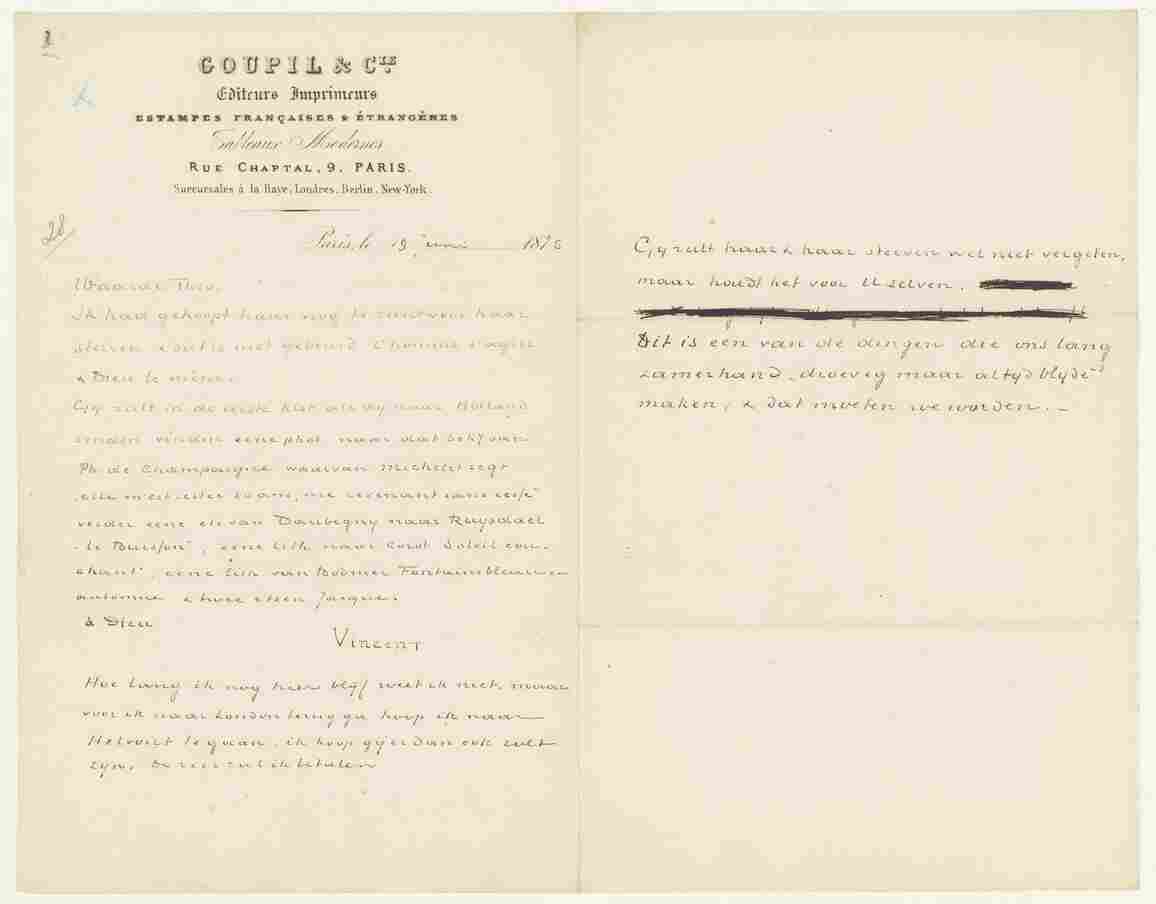 GOUPIL & Cⁱᵉ
Editeurs Imprimeurs
ESTAMPES FRANÇAISES & ÉTRANGÈRES
Tableaux Modernes
RUE CHAPTAL, 9, PARIS.
Succursales à la Haye, Londres, Berlin, New-York.
28/
Paris, le 19 Juni 1875
Waarde Theo,
Ik had gehoopt haar nog te zien voor haar
sterven & dit is niet gebeurd. L'homme s'agite
& Dieu le mène.
Gij zult in de eerste kist die wij naar Holland
zenden vinden eene phot. naar dat schij van
Ph. de Champaigne waarvan Michelet zegt
elle m'est restée 30 ans, me revenant sans cesse"
verder eene ets van Daubigny naar Ruysdael
"Le Buisson", eene lith. naar Corot Soleil cou-
chant", eene lith. van Bodmer Fontainebleau en
automne & twee etsen Jacque.
à Dieu
Vincent
Hoe lang ik nog hier blijf weet ik niet, maar
voor ik naar London terug ga hoop ik naar
Helvoirt te gaan, ik hoop gij er dan ook zult
zijn. De reis zal ik betalen
Gij zult haar & haar sterven wel niet vergeten,
maar houdt het voor U zelven.
Dit is een van de dingen die ons lang
zamerhand "droevig maar altyd blyde"
maken, & dat moeten we worden. –